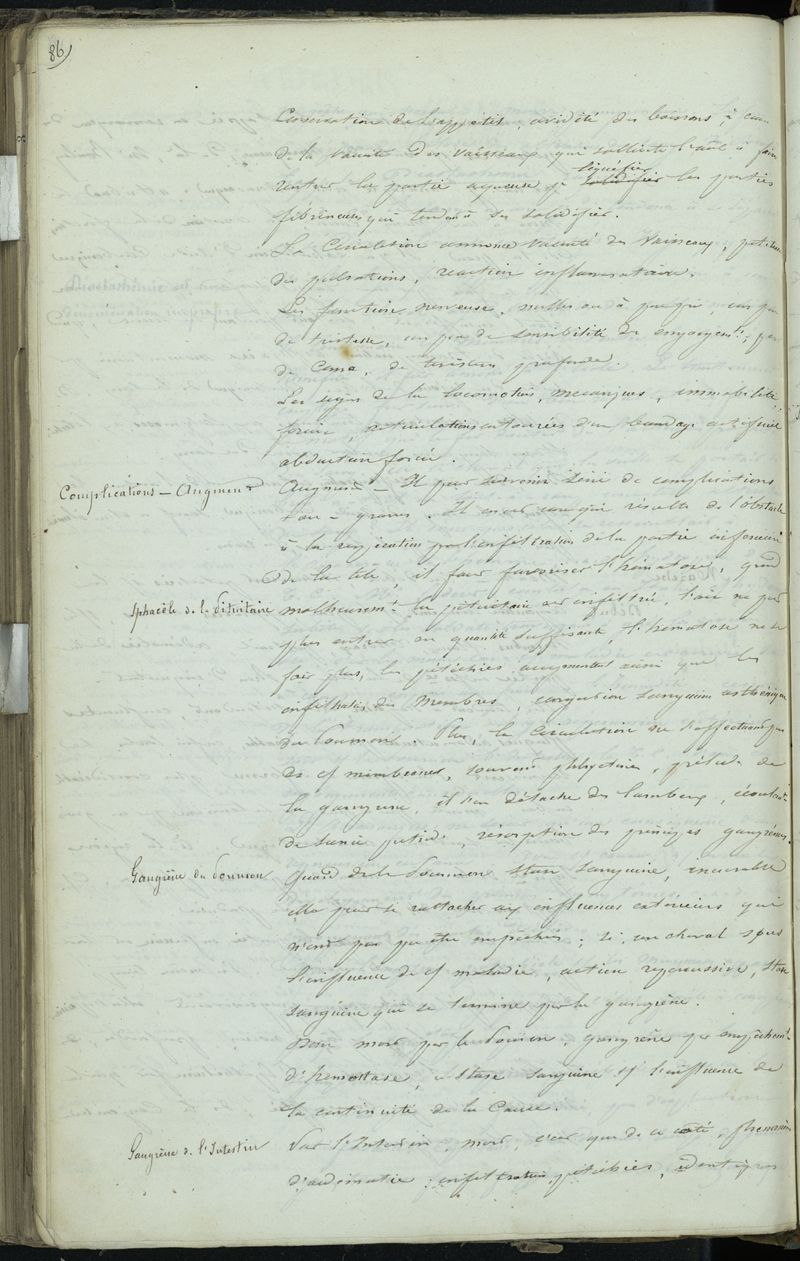 86)
Conservation de l'appétit, avidité des boissons, à cause
de la vacuité des vaisseaux qui sollicite l'eau à faire
liquéfier
rentrer la partie aqueuse pr solidifier les parties
fibrineuses qui tendent à se solidifier.
La Circulation annonce vacuité des vaisseaux, petitesse
des pulsations, réaction inflammatoire.
Les fonctions nerveuses, nulles ou à peu près, un peu
de tristesse, un peu de sensibilité des engorgemts, pas
de Coma, de tristesse profonde.
Les signes de la locomotion, mécaniques, immobilité
forcée, articulations entourées d'un bandage
abduction forcée.
Complications – Augment
Augment – Il peut survenir série de complications
graves. Il en est une qui résulte de l'obstacle
à la respiration par l'infiltration de la partie inférieure
de la tête, il faut favoriser l'hématose, quand
Sphacèle de la Pituitaire
malheureusemt la pituitaire est infiltrée, l'air ne peut
plus entrer en quantité suffisante, l'hématose ne se
fait plus, les pétéchies augmentent ainsi que les
infiltrations des Membres, congestion sanguine asthénique
du Poumon. Plus, la circulation ne s'effectuant pas
ds cs membranes, souvent phlyctènes, prélude de
la gangrène, il s'en détache des lambeaux, écoulemt
de sanie putride, résorption des principes gangréneux.
Gangrène du Poumon
Quand ds le Poumon stase sanguine, incurable
elle peut se rattacher aux influences extérieures qui
n'ont pas pu être empêchées; si un cheval sous
l'influence de cs maladie, action répercussive, stase
sanguine qui se termine par la gangrène.
Donc mort par le Poumon, gangrène par empêchemt
d'hématose, stase sanguine ss l'influence de
la continuité de la Cause.
Gangrène de l'Intestin
Sur l'Intestin, mort, c'est que de ce coté, phénomènes
d'œdématie, infiltration, pétéchies, identiques